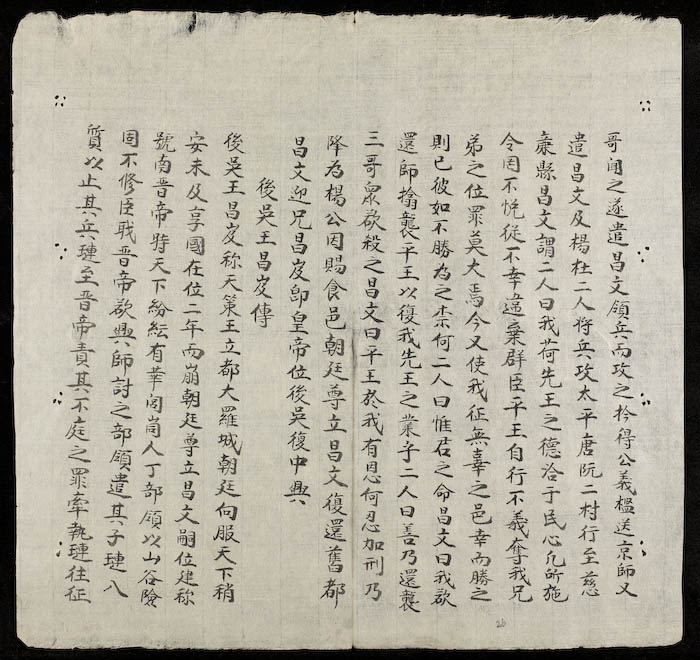 哥闻之遂遣昌文領兵而攻之衿得公義槛送京師又
遣昌文及楊杜二人将兵攻太平唐阮二村行至慈
亷縣昌文謂二人曰我荷先王之德洽于民心凡所施
令罔不悦從不幸違棄群臣平王自行不義奪我兄
弟之位罪莫大焉今又使我征無辜之邑幸而勝之
則已彼如不勝為之柰何二人曰惟君之命昌文曰我欲
還師揜襲平王以復我先王之業乎二人曰善乃還襲
三哥衆欲殺之昌文曰平王於我有恩何忍加刑乃
降為楊公因賜食邑朝廷尊立昌文復還舊都
昌文迎兄昌岌卽皇帝位後吳復中興
後吳王昌岌傳
後吳王昌岌称天策王立都大羅城朝廷向服天下稍
安未及享國在位二年而崩朝廷尊立昌文嗣位建称
號南晋帝時天下紛紜有華閭峝人丁部領以山谷險
固不修臣職晋帝欲興師討之部領遣其子璉入
質以止其兵璉至晋帝責其不庭之罪牽執璉往征
26